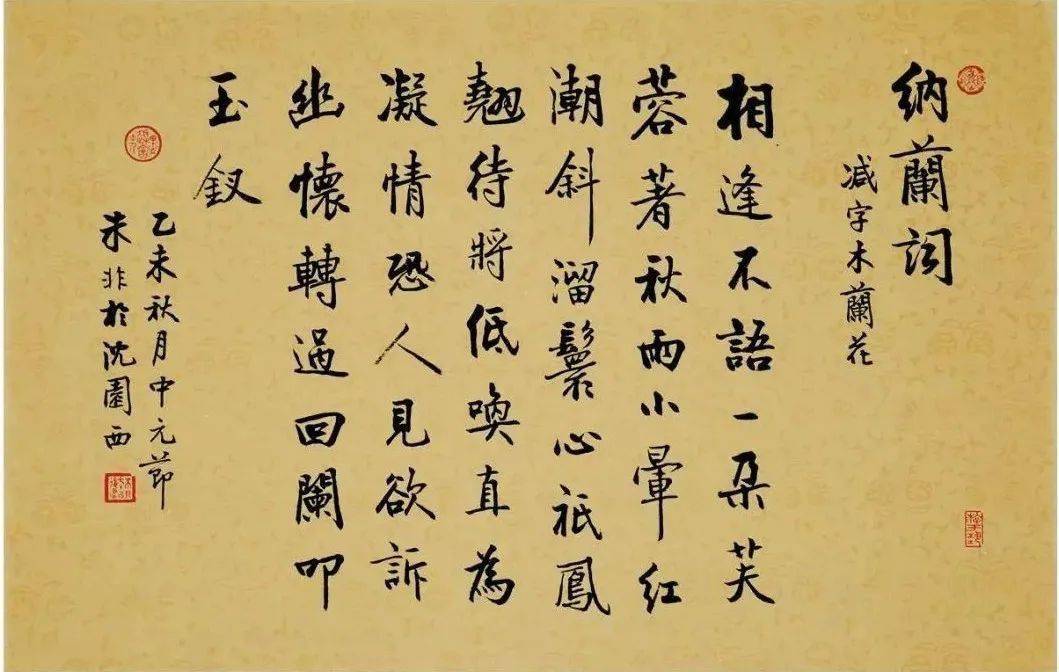 納蘭詞
减字木蘭花
相逢不語一朶芙
蓉著秋雨小暈紅
潮斜溜鬟心祇鳳
翹待將低喚直為
凝情恐人見欲訴
幽懷轉過回闌叩
玉釵
乙未秋月中元節
朱非於沈園西